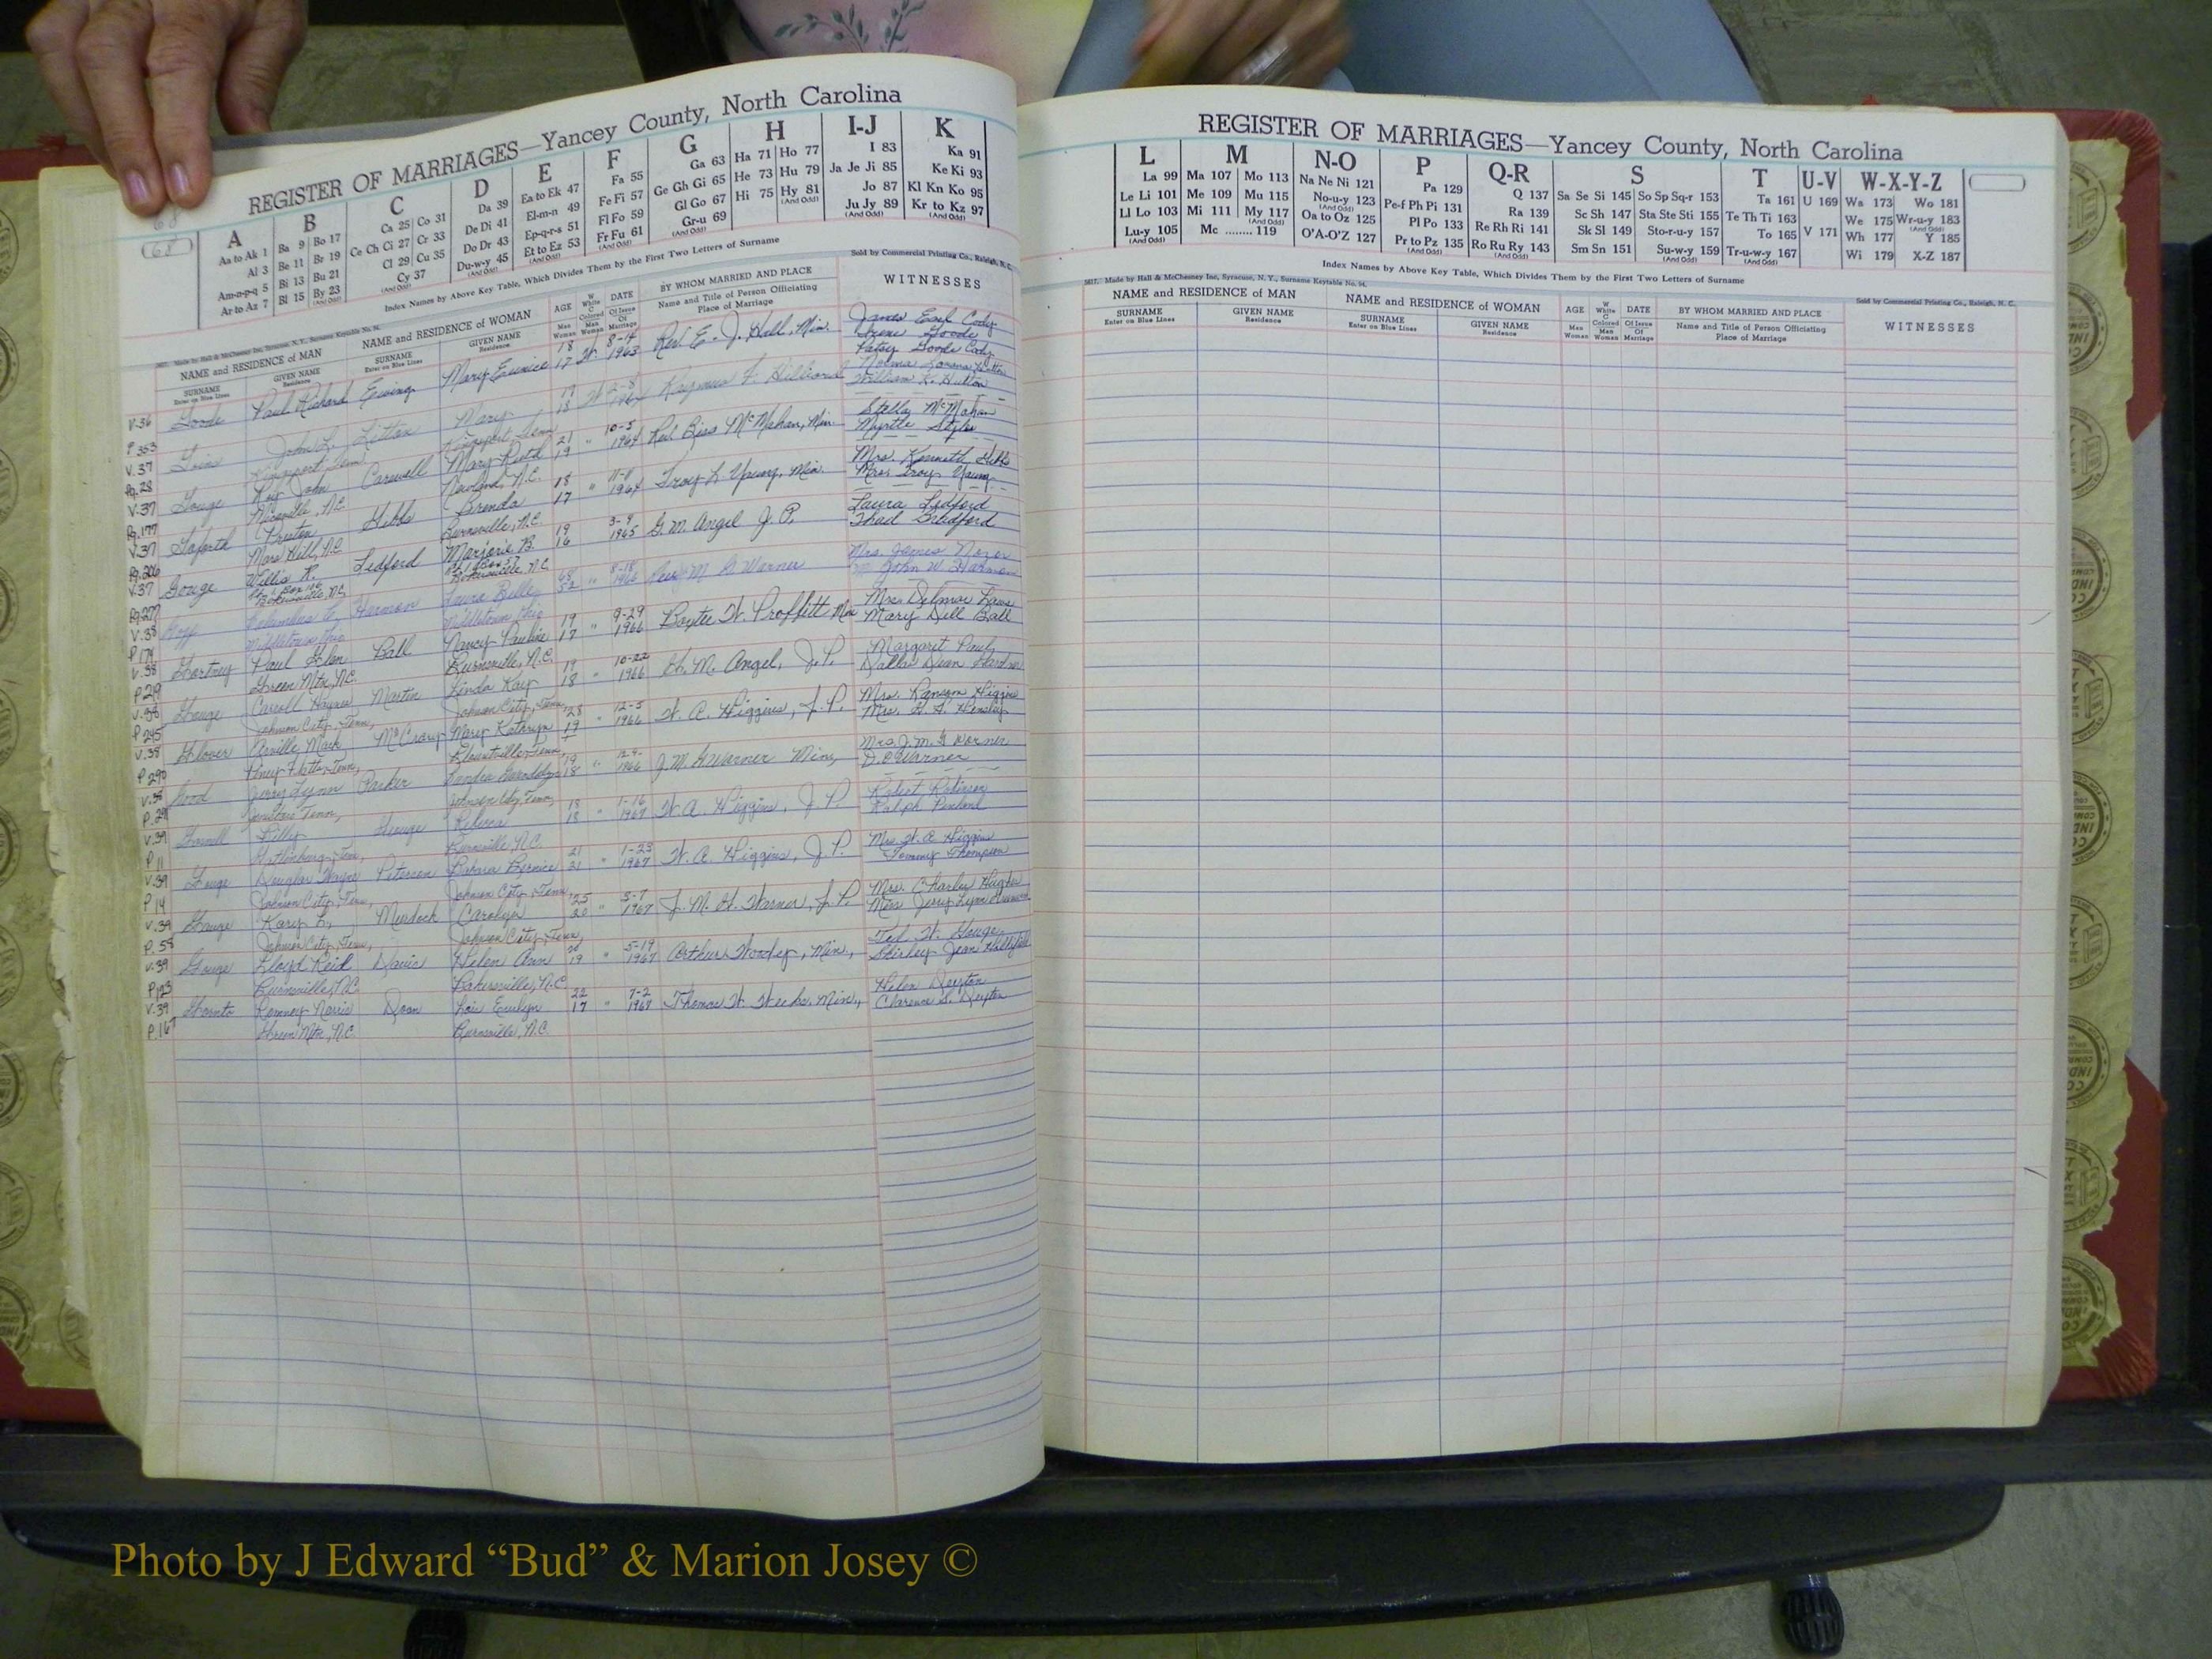 68
68
REGISTER OF MARRIAGES—Yancey County, North Carolina
A
Aa to Ak 1
Al 3
Am-n-p-q 5
Ar to Az 7
B
Ba 9 Bo 17
Be 11 Br 19
Bi 13 Bu 21
Bl 15 By 23
(And Odd)
C
Ca 25 Co 31
Ce Ch Ci 27 Cr 33
Cl 29 Cu 35
(And Odd) Cy 37
D
Da 39
De Di 41
Do Dr 43
Du-w-y 45
(And Odd)
E
Ea to Ek 47
El-m-n 49
Ep-q-r-s 51
Et to Ez 53
(And Odd)
F
Fa 55
Fe Fi 57
Fl Fo 59
Fr Fu 61
(And Odd)
G
Ga 63
Ge Gh Gi 65
Gl Go 67
Gr-u 69
(And Odd)
H
Ha 71 Ho 77
He 73 Hu 79
Hi 75 Hy 81
(And Odd)
I-J
I 83
Ja Je Ji 85
Jo 87
Ju Jy 89
(And Odd)
K
Ka 91
Ke Ki 93
Kl Kn Ko 95
Kr to Kz 97
(And Odd)
Index Names by Above Key Table, Which Divides Them by the First Two Letters of Surname
Sold by Commercial Printing Co., Raleigh, N. C.
Made by Hall & McChesney Inc, Syracuse, N. Y., Surname Keytable No. 54.
NAME and RESIDENCE of MAN
SURNAME
Enter on Blue Lines
GIVEN NAME
Residence
NAME and RESIDENCE of WOMAN
SURNAME
Enter on Blue Lines
GIVEN NAME
Residence
AGE
Men
Women
W
White
C
Colored
Man
Woman
DATE
Of Issue
Of
Marriage
BY WHOM MARRIED AND PLACE
Name and Title of Person Officiating
Place of Marriage
WITNESSES
V.36 Goode Paul Richard Ewing Mary Eunice 18 17 W 8-14 1963 Rev. E. J. Hall, Min. James Earl Cody
Irene Goode
Patsy Goode Cody
P 353
V.37 John L. Litton Mary 19 18 W 1964 William K. Hutton
Pg.28 Kingsport Tenn Kingsport Tenn
V.37 Gouge Roy John Carswell Mary Ruth 21 19 " 10-5 1964 Rev. Biss McMahan, Min. Stella McMahan
Myrtle Styles
Pg.177 Micaville, N.C. Newland, N.C.
V.37 Goforth Preston Gibbs Brenda 18 17 " 11-11 1964 Troy L. Young, Min. Mrs. Kenneth Gibbs
Mrs. Troy Young
Pg.206 Mars Hill, N.C. Burnsville, N.C.
V.37 Gouge Willis R. Ledford Marjorie B. 19 16 3-9 1965 G. M. Angel J. P. Laura Ledford
Thad Bradford
Pg.277 Bakersville, N.C. Bakersville, N.C.
V.38 Columbus Harmon Laura Belle 68 52 " 8-18 1966 Rev. M. G. Warner Mrs. James
John W. Harmon
P 174 Middletown Ohio Middletown Ohio
V.38 Gortney Paul Glen Ball Nancy Pauline 19 17 " 9-29 1966 Boyte W. Proffitt Min Mrs. Delmar Laws
Mary Dell Ball
P 219 Green Mtn, N.C. Burnsville, N.C.
V.38 Gouge Carroll Haynes Martin Linda Kay 19 18 " 10-22 1966 G. M. Angel, J. P. Margaret Paul
Dallas Dean
P 245 Johnson City, Tenn, Johnson City, Tenn,
V.38 Glover Arville Mack McCrary Mary Kathryn 28 19 " 12-5 1966 W. A. Higgins, J. P. Mrs. Ransom Higgins
Mrs. G. S. Hensley
P 290 Piney Flatts, Tenn, Blountville, Tenn,
V.38 Good Jerry Lynn Parker Sandra 19 18 " 1966 J.M. G Warner Min, Mrs J.M. G Warner
D.E. Warner
P. 291 Tenn, Johnson City Tenn,
V.39 Gosnell Billy George Rebecca 18 18 " 1-16 1967 W. A. Higgins, J. P. Robert Robinson
Ralph Penland
P 11 Burnsville N.C.
V.39 Gouge Douglas Wayne Peterson Barbara Bernice 21 21 " 1-23 1967 W. A. Higgins, J. P. Mrs. W. A. Higgins
Tommy Thompson
P 14 Johnson City, Tenn, Johnson City, Tenn
V.39 Gouge Kary L, Murdock Carolyn 25 20 " 3-7 1967 J. M. G. Warner, J. P. Mrs. Charles Hughes
Mrs. Jerry Lynn
P. 58 Johnson City, Tenn, Johnson City, Tenn,
V.39 Gouge Lloyd Reid Davis Helen Ann 20 19 " 5-19 1967 Arthur Woody, Min, Ted W. Gouge
Shirley Jean Hollifield
P 123 Burnsville, N.C. Bakersville, N.C.
V.39 Romney Norris Doan Lois Evelyn 22 17 " 7-2 1967 Thomas W. Weeks, Min, Helen Deyton
Clarence S. Deyton
P.167 Green Mtn, N.C. Burnsville, N.C.
REGISTER OF MARRIAGES—Yancey County, North Carolina
L
La 99
Le Li 101
Ll Lo 103
Lu-y 105
(And Odd)
M
Ma 107 Mo 113
Me 109 Mu 115
Mi 111 My 117
(And Odd)
Mc ........ 119
N-O
Na Ne Ni 121
No-u-y 123
(And Odd)
Oa to Oz 125
O'A-O'Z 127
P
Pa 129
Pe-f Ph Pi 131
Pl Po 133
Pr to Pz 135
(And Odd)
Q-R
Q 137
Ra 139
Re Rh Ri 141
Ro Ru Ry 143
(And Odd)
S
Sa Se Si 145 So Sp Sq-r 153
Sc Sh 147 Sta Ste Sti 155
Sk Sl 149 Sto-r-u-y 157
Sm Sn 151 Su-w-y 159
(And Odd)
T
Ta 161
Te Th Ti 163
To 165
Tr-u-w-y 167
(And Odd)
U-V
U 169
V 171
W-X-Y-Z
Wa 173 Wo 181
We 175 Wr-u-y 183
(And Odd)
Wh 177 Y 185
Wi 179 X-Z 187
Index Names by Above Key Table, Which Divides Them by the First Two Letters of Surname
5617. Made by Hall & McChesney Inc, Syracuse, N. Y., Surname Keytable No. 54.
Sold by Commercial Printing Co., Raleigh, N. C.
NAME and RESIDENCE OF MAN
SURNAME
Enter on Blue Lines
GIVEN NAME
Residence
NAME and RESIDENCE of WOMAN
SURNAME
Enter on Blue Lines
GIVEN NAME
Residence
AGE
Men
Women
W
White
C
Colored
Man
Woman
DATE
Of Issue
Of
Marriage
BY WHOM MARRIED AND PLACE
Name and Title of Person Officiating
Place of Marriage
WITNESSES
Photo by J Edward “Bud” & Marion Josey ©